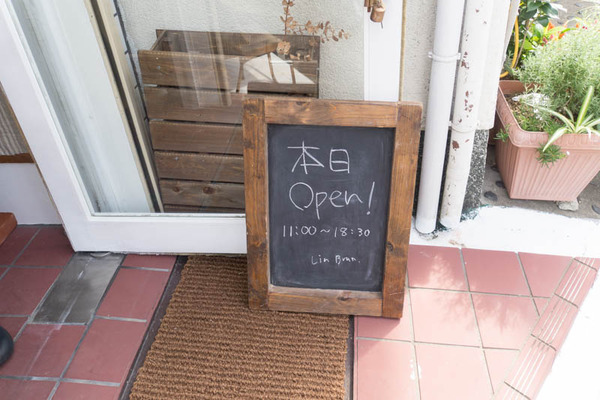 本日
Open!
11:00~18:30
Lin Bran.